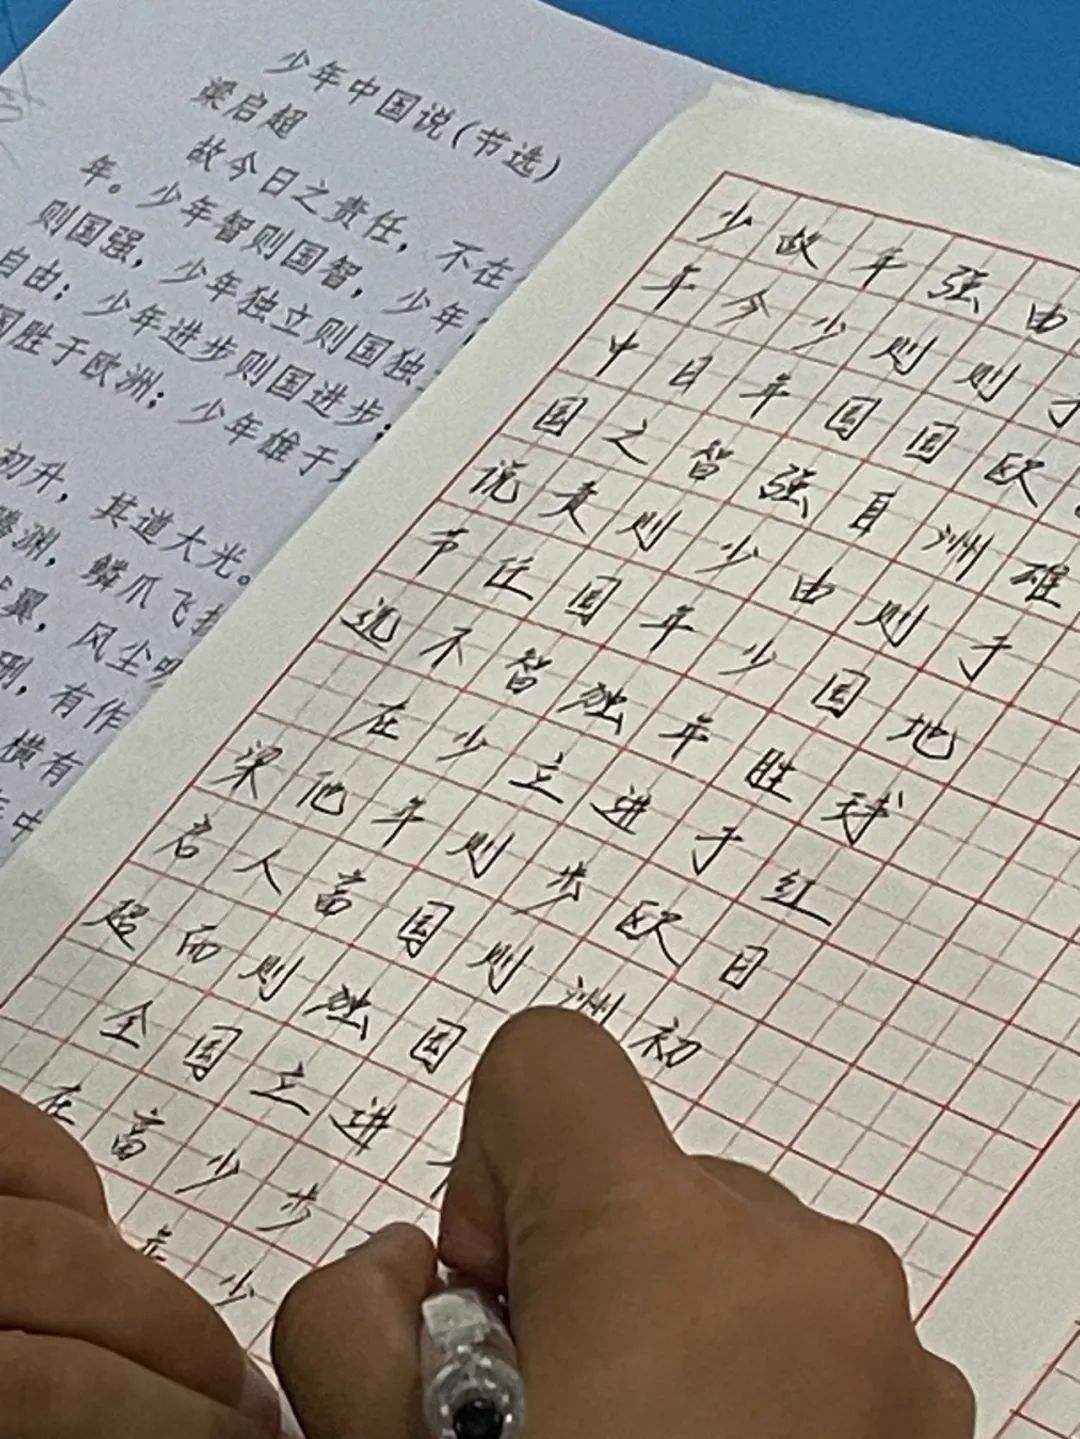 少年中国说(节选)
梁启超
故今日之责任,不在
年。少年智则国智,少年
则国强,少年独立则国独
自由;少年进步则国进步;
国胜于欧洲;少年雄于
初升,其道大光。
腾渊,鳞爪飞
翼,风尘吸
,有作
横有
中
少年中国说节选 梁启超
故今日之责任不在他人而全在
年少年智则国智少年富则国富
强则国强少年独立则国独立少年
由则国自由少年进步则国进步少
于欧洲则国胜于欧洲
雄于地球红日初